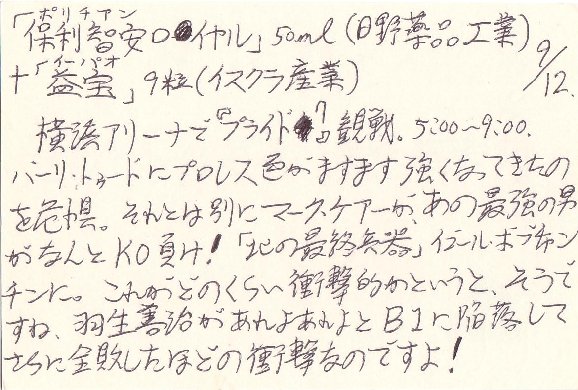 ポリチアン
「保利智安ロイヤル」50ml(日野薬品工業)
9/12.
イーパオ
+「益宝」9粒(イスクラ産業)
横浜アリーナで『プライド7』観戦。5:00~9:00.
バーリ・トゥードにプロレス色がますます強くなってきたの
を危惧。それとは別にマーク・ケアーが、あの最強の男
がなんとKO負け!「北の最終兵器」イゴール・ボブチャン
チンに。これがどのくらい衝撃的かというと、そうで
すね、羽生善治があれよあれよとB1に陥落して
さらに全敗したほどの衝撃なのですよ!